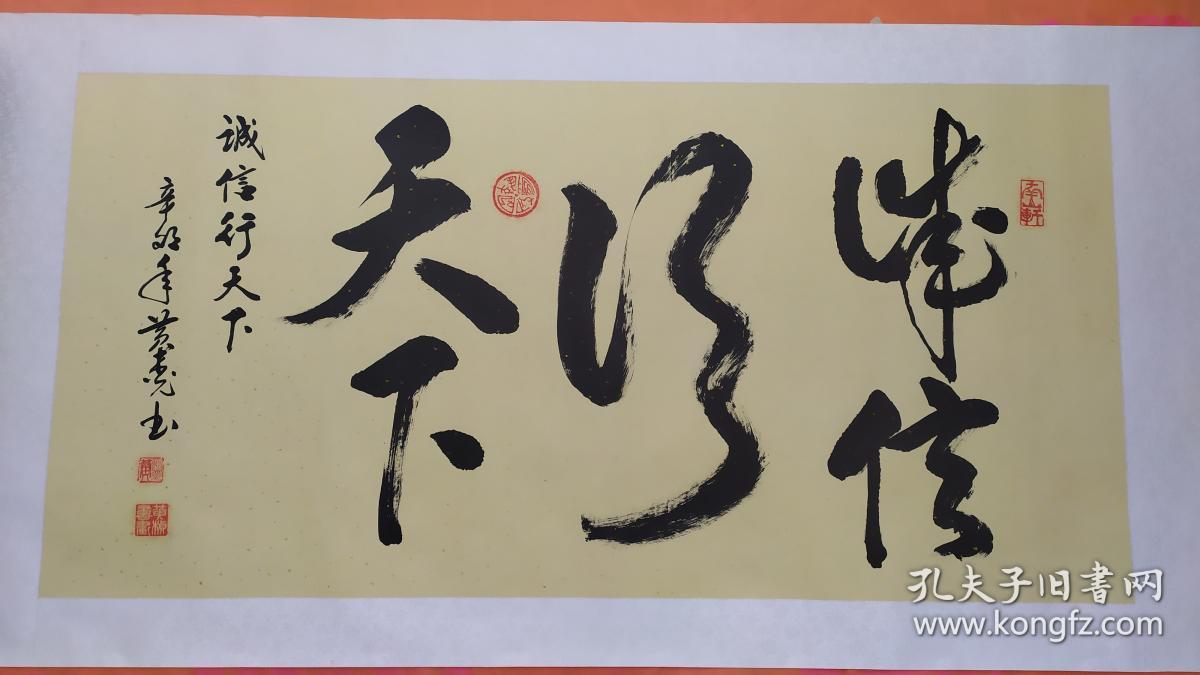 誠信
行
天下
誠信行天下
辛卯年黄堯书
孔夫子旧書网
www.kongfz.com